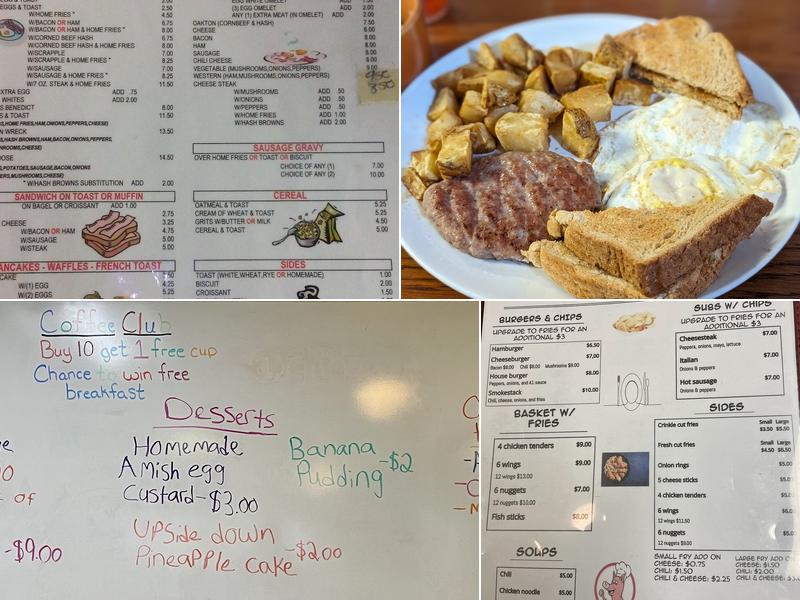 EGGS & TOAST 2.50
W/BACON OR HAM 6.75
W/BACON OR HAM & HOME FRIES * 8.00
W/CORNED BEEF HASH 6.75
W/CORNED BEEF HASH & HOME FRIES 8.00
W/SCRAPPLE 7.00
W/SCRAPPLE & HOME FRIES * 8.25
W/SAUSAGE 7.00
W/SAUSAGE & HOME FRIES * 8.25
W/7 OZ. STEAK & HOME FRIES 11.50
EXTRA EGG ADD .75
WHITES ADD 2.00
S BENEDICT 8.00
S & TOAST 11.50
S,HOME FRIES,HAM,ONIONS,PEPPERS,CHEESE)
N WRECK 13.50
S,HASH BROWNS,HAM,BACON,ONIONS,PEPPERS,
,MUSHROOMS,CHEESE)
OSE 14.50
,POTATOES,SAUSAGE,BACON,ONIONS
ERS,MUSHROOMS,CHEESE)
* W/HASH BROWNS SUBSTITUTION ADD 2.00
SANDWICH ON TOAST OR MUFFIN
ON BAGEL OR CROISSANT ADD 1.00
2.75
CHEESE 3.25
W/BACON OR HAM 4.75
W/SAUSAGE 5.00
W/STEAK 5.00
PANCAKES - WAFFLES - FRENCH TOAST
CAKE
W/(1) EGG 4.25
W/(2) EGGS 5.25
EGG WHITE OMELET
(3) EGG OMELET ADD 2.00
ANY (1) EXTRA MEAT (IN OMELET) ADD 2.00
OAKTON (CORNBEEF & HASH) 7.50
CHEESE 6.00
BACON 8.00
HAM 8.00
SAUSAGE 8.00
CHILI CHEESE 8.00
VEGETABLE (MUSHROOMS,ONIONS,PEPPERS) 9.00
WESTERN (HAM,MUSHROOMS,ONIONS,PEPPERS)
CHEESE STEAK 850
W/MUSHROOMS ADD .50
W/ONIONS ADD .50
W/PEPPERS ADD .50
W/HOME FRIES ADD 1.00
W/HASH BROWNS ADD 2.00
SAUSAGE GRAVY
OVER HOME FRIES OR TOAST OR BISCUIT
CHOICE OF ANY (1) 7.00
CHOICE OF ANY (2) 10.00
CEREAL
OATMEAL & TOAST 5.25
CREAM OF WHEAT & TOAST 5.25
GRITS W/BUTTER OR MILK 4.50
CEREAL & TOAST 5.00
SIDES
TOAST (WHITE,WHEAT,RYE OR HOMEMADE) 1.00
BISCUIT 2.00
CROISSANT 1.50
Coffee Club
Buy 10 get 1 free cup
Chance to win free
breakfast
Desserts
Homemade
Amish egg
Custard-$3.00
Upside down
Pineapple cake-$2.00
Banana
Pudding -$2
of
-$9.00
BURGERS & CHIPS
UPGRADE TO FRIES FOR AN
ADDITIONAL $3
Hamburger $6.50
Cheeseburger $7.00
Bacon $8.00 Chili $8.00 Mushrooms $8.00
House burger $8.00
Peppers, onions, and A1 sauce
Smokestack $10.00
Chili, cheese, onions, and fries
BASKET W/
FRIES
4 chicken tenders $9.00
6 wings $9.00
12 wings $13.00
6 nuggets $7.00
12 nuggets $10.00
Fish sticks $8.00
SOUPS
Chili $5.00
Chicken noodle $5.00
SUBS W/ CHIPS
UPGRADE TO FRIES FOR AN
ADDITIONAL $3
Cheesesteak $7.00
Peppers, onions, mayo, lettuce
Italian $7.00
Onions & peppers
Hot sausage $7.00
Onions & peppers
SIDES
Crinkle cut fries Small Large
$3.50 $5.50
Fresh cut fries Small Large
$4.50 $6.50
Onion rings $5.00
5 cheese sticks $5.00
4 chicken tenders $5.00
6 wings $6.00
12 wings $11.50
6 nuggets $5.00
12 nuggets $9.00
SMALL FRY ADD ON
CHEESE: $0.75
CHILI: $1.50
CHILI & CHEESE: $2.25
LARGE FRY ADD ON
CHEESE: $1.50
CHILI: $2.00
CHILI & CHEESE: $3